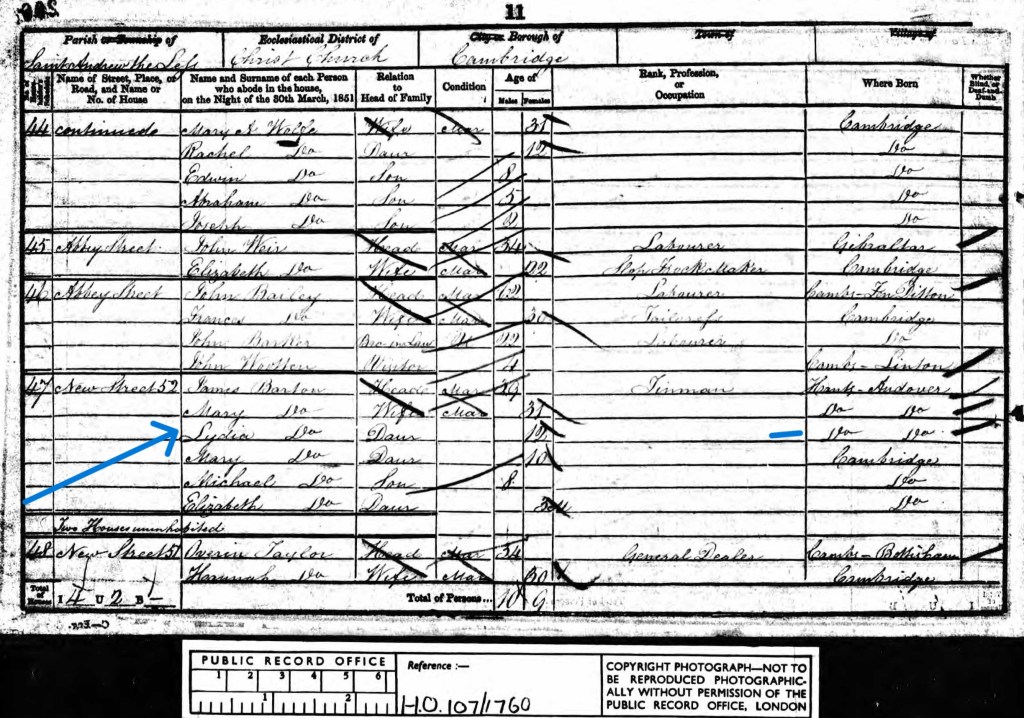 11
Parish or Township of
Ecclesiastical District of
City or Borough of
Town of
Village of
Saint Andrew the Less
Christ Church
Cambridge
Name of Street, Place, or Road, and Name or No. of House
Name and Surname of each Person who abode in the house, on the Night of the 30th March, 1851
Relation to Head of Family
Condition
Age of
Males
Females
Rank, Profession, or Occupation
Where Born
Whether Blind, or Deaf-and-Dumb
44 continued Mary A Wolfe Wife Mar 31 Cambridge
Rachel Do Daur 12 Do
Edwin Do Son 8 Do
Abraham Do Son 5 Do
Joseph Do Son 2 Do
45 Abbey Street John Weir Head Mar 34 Labourer Gibraltar
Elizabeth Do Wife Mar 22 Slop Frock Maker Cambridge
46 Abbey Street John Bailey Head Mar 62 Labourer Cambs-Fn Ditton
Frances Do Wife Mar 30 Tailoress Cambridge
John Barker Bro-in-Law U Labourer Do
John Wootten Visitor Cambs-Linton
47 New Street 52 James Barton Head Mar 29 Tinman Hants-Andover
Mary Do Wife Mar 31 Do Do
Lydia Do Daur 12 Do Do
Mary Do Daur 10 Cambridge
Michael Do Son 8 Do
Elizabeth Do Daur Do
Two Houses uninhabited
48 New Street 51 Head Mar 34 General Dealer Cambs-Bottisham
Hannah Do Wife Mar 30 Cambridge
Total of Houses
I 4 U 2 B
Total of Persons...
10 9
PUBLIC RECORD OFFICE
1 2 3 4 5 6
1 2
Reference :—
H.O. 107/1760
COPYRIGHT PHOTOGRAPH—NOT TO
BE REPRODUCED PHOTOGRAPHIC-
ALLY WITHOUT PERMISSION OF THE
PUBLIC RECORD OFFICE, LONDON